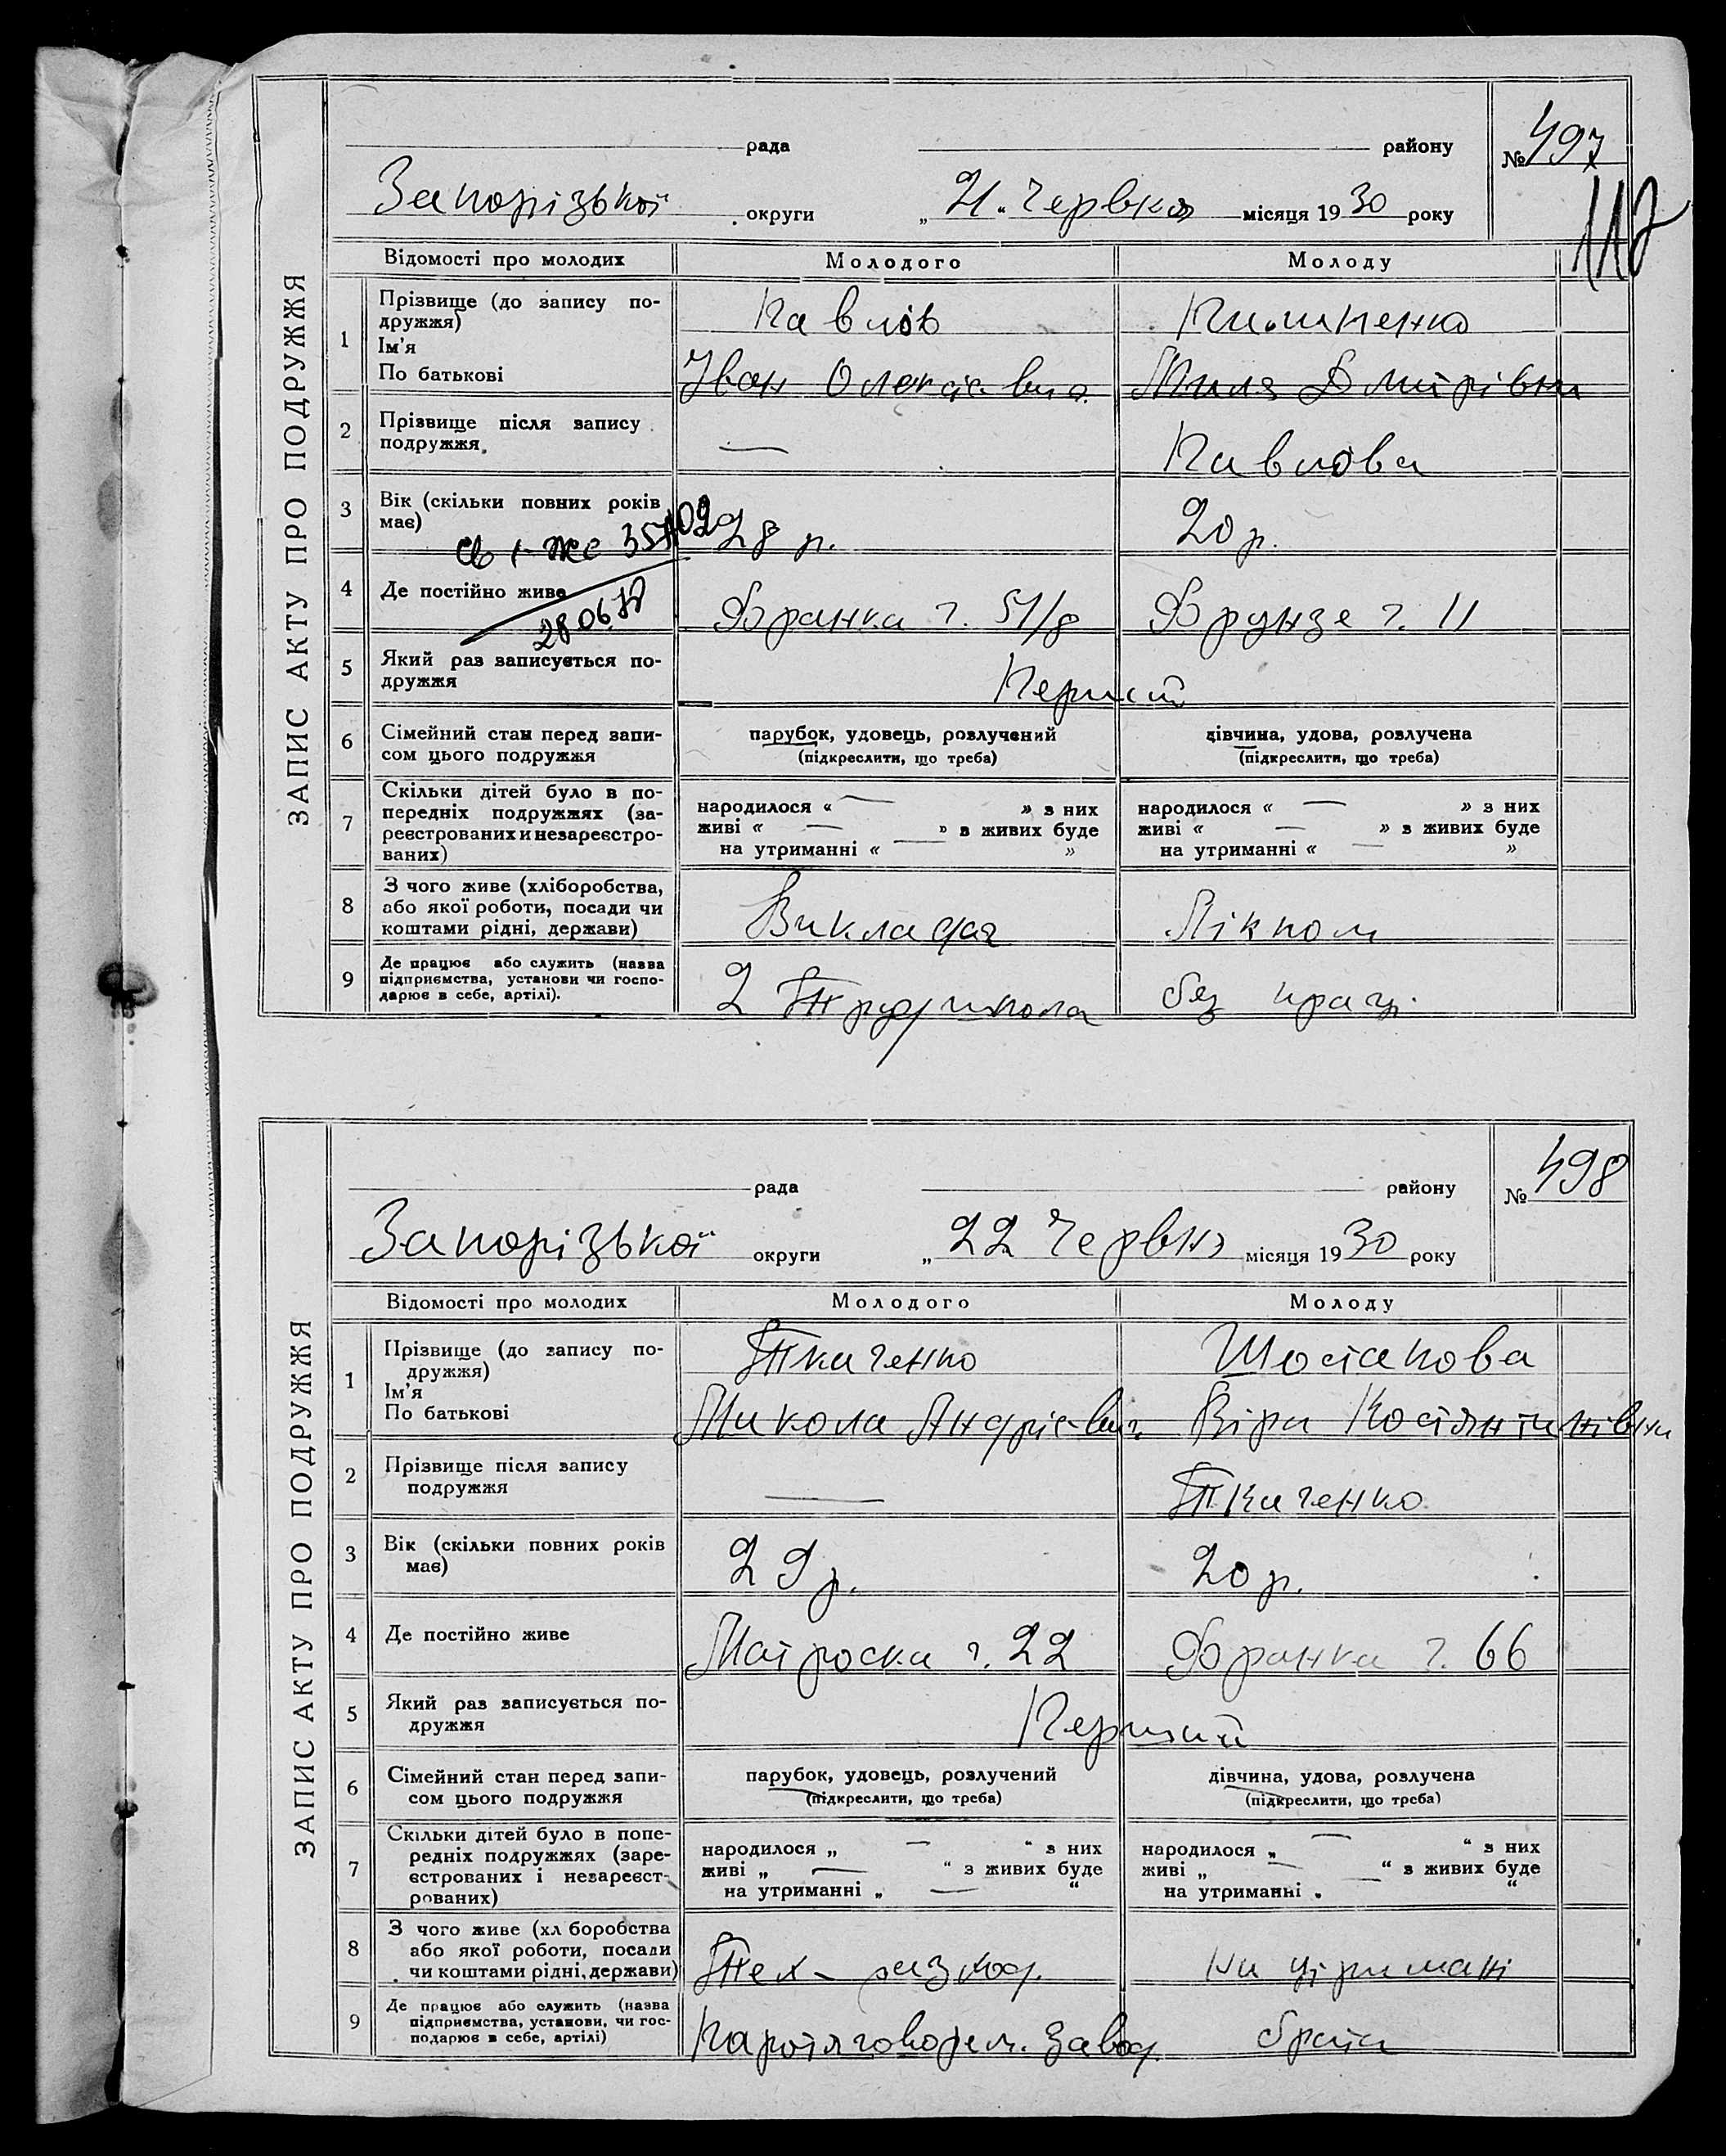 ЗАПИС АКТУ ПРО ПОДРУЖЖЯ
рада району № 497
117
Запорізької округи „21" Червня місяця 1930 року
Відомості про молодих Молодого Молоду
1 Прізвище (до запису по-
дружжя)
Ім'я
По батькові
Павлов
Іван Олексієвич Дмитрівна
2 Прізвище після запису
подружжя.
— Павлова
3 Вік (скільки повних років
має)
28 р. 20 р.
4 Де постійно живе
28 06
Франка ч. 51/8 Фрунзе ч. 11
5 Який раз записується по-
дружжя
Перший
6 Сімейний стан перед запи-
сом цього подружжя
парубок, удовець, розлучений дівчина, удова, розлучена
(підкреслити, що треба) (підкреслити, що треба)
7 Скільки дітей було в по-
передніх подружжях (за-
реєстрованих и незареєстро-
ваних)
народилося « — » з них народилося « — » з них
живі « — » з живих буде живі « — » з живих буде
на утриманні « — » на утриманні « — »
8 З чого живе (хліборобства,
або якої роботи, посади чи
коштами рідні, держави)
Викладач Лікпом
9 Де працює або служить (назва
підприємства, установи чи госпо-
дарює в себе, артілі).
2 Трудшкола без праці
ЗАПИС АКТУ ПРО ПОДРУЖЖЯ
рада району № 498
Запорізької округи „22 Червня місяця 1930 року
Відомості про молодих Молодого Молоду
1 Прізвище (до запису по-
дружжя)
Ім'я
По батькові
Ткаченко Шостакова
Микола Андрієвич Віра Костянтинівна
2 Прізвище після запису
подружжя
— Ткаченко
3 Вік (скільки повних років
має)
29 р. 20 р.
4 Де постійно живе
Матроска ч. 22 Франка ч. 66
5 Який раз записується по-
дружжя
Перший
6 Сімейний стан перед запи-
сом цього подружжя
парубок, удовець, розлучений дівчина, удова, розлучена
(підкреслити, що треба) (підкреслити, що треба)
7 Скільки дітей було в попе-
редніх подружжях (заре-
єстрованих і незареєст-
рованих)
народилося „ — “ з них народилося „ — “ з них
живі „ — “ з живих буде живі „ — “ з живих буде
на утриманні „ — “ на утриманні . — “
8 З чого живе (хл боробства
або якої роботи, посади
чи коштами рідні, держави)
Тех- на утримані
9 Де працює або служить (назва
підприємства, установи, чи гос-
подарює в себе, артілі)
Паротяговорем. завод. брата